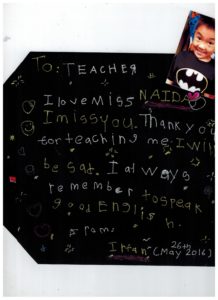 To: TEACHER
I love Miss NAIDA
I miss you. Thank you
for teaching me. I will
be sad. I always
remember to speak
good English.
From:
Irfan (26th May 2016)